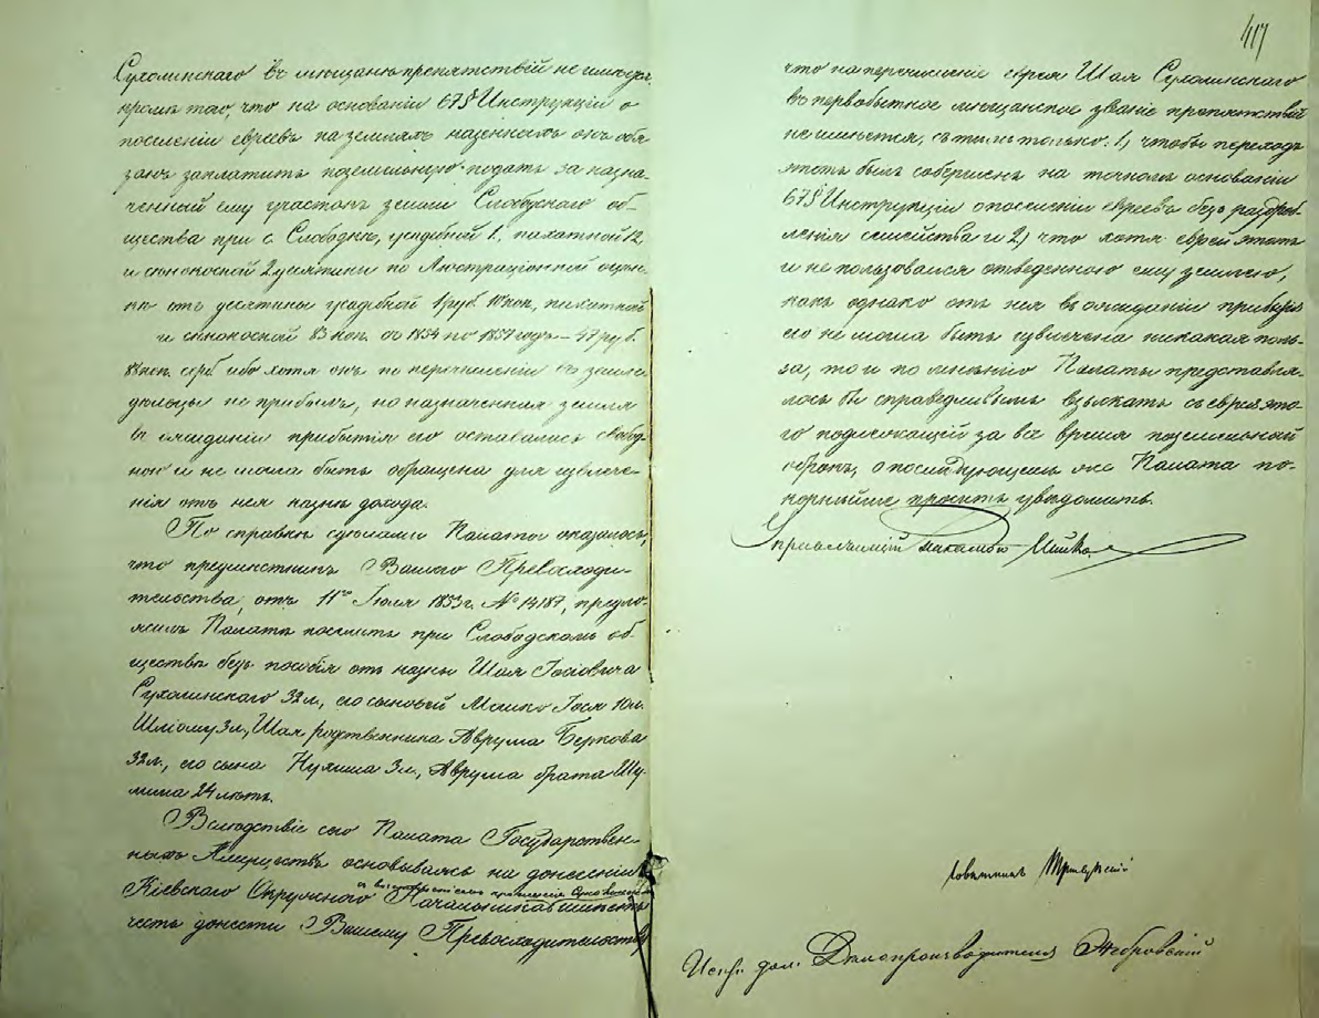 Сухолинскаго въ мѣщане препятствій не имѣется
кромѣ того, что на основаніи 67§ Инструкціи о
поселеніи евреевъ на земляхъ казенныхъ онъ обя-
занъ заплатить поземельную подать за назна-
ченный ему участокъ земли Слободскаго об-
щества при с. Слободкѣ, усадебной 1, пахатной 12,
и сѣнокосной 2 десятины по Люстраціонной оцѣн-
кѣ отъ десятины усадебной 1 руб. коп., пахатной
и сѣнокосной 83 коп. съ 1854 по 1857 годъ – 47 руб.
88 коп. сереб. ибо хотя онъ по перечисленіи въ земле-
дѣльцы не прибылъ, но назначенная земля
въ ожиданіи прибытія его оставалась свобод-
ною и не могла быть обращена для извлече-
нія отъ нея казнѣ дохода.
По справкѣ съ дѣлами Палаты оказалось,
что предмѣстникъ Вашего Превосходи-
тельства, отъ 11го Іюля 1853 г. № 14187, предло-
жилъ Палатѣ поселить при Слободскомъ об-
ществѣ безъ пособія отъ казны Шая Іосіовича
Сухолинскаго 32 л., его сыновей Мошко Іося 10 л.
Шліому 3 л., Шая родственника Аврума Беркова
32 л., его сына Нухима 3 л., Аврума брата Шу-
лима 24 лѣтъ.
Вслѣдствіе сего Палата Государствен-
ныхъ Имуществъ основываясь на донесеніи
Кіевскаго Окружнаго Начальника имѣетъ
честь донести Вашему Превосходительству
417
что на перечисленіе еврея Шая Сухолинскаго
въ первобытное мѣщанское званіе препятствій
не имѣется, съ тѣмъ только: 1) чтобы переходъ
этотъ былъ совершенъ на точномъ основаніи
67§ Инструкціи о поселеніи евреевъ безъ раздроб-
ленія семейства и 2) что хотя еврей этотъ
и не пользовался отведенною ему землею,
какъ однако отъ нея въ ожиданіи прибытія
его не могла быть извлечена никакая поль-
за, то и по мнѣнію Палаты представля-
лось бы справедливымъ взыскать съ еврея это-
го подлежащій за все время поземельный
оброкъ, о послѣдующемъ же Палата по-
корнѣйше проситъ увѣдомить.
Управляющій
Совѣтникъ
Испр. дол. Дѣлопроизводителя Жебровскій